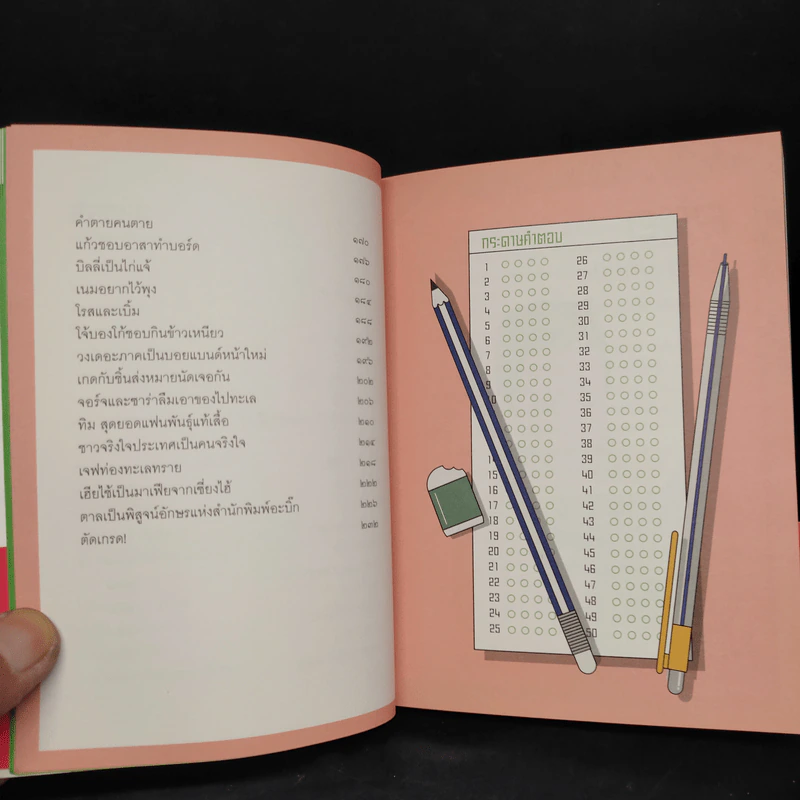 คำตายคนตาย ๑๗๐
แก้วชอบอาสาทำบอร์ด ๑๗๖
บิลลี่เป็นไก่แจ้ ๑๘๐
เนมอยากไว้พุง ๑๘๔
โรสและเบิ้ม ๑๘๘
โจ้บองโก้ชอบกินข้าวเหนียว ๑๙๒
วงเดอะภาคเป็นบอยแบนด์หน้าใหม่ ๑๙๖
เกดกับชิ้นส่งหมายนัดเจอกัน ๒๐๒
จอร์จและซาร่าลืมเอาของไปทะเล ๒๐๖
ทิม สุดยอดแฟนพันธุ์แท้เสื้อ ๒๑๐
ซาวจริงใจประเทศเป็นคนจริงใจ ๒๑๔
เจฟท่องทะเลทราย ๒๑๘
เฮียไช้เป็นมาเฟียจากเซี่ยงไฮ้ ๒๒๒
ตาลเป็นพิสูจน์อักษรแห่งสำนักพิมพ์อะบิ๊ก ๒๒๖
ตัดเกรด! ๒๓๒
กระดาษคำตอบ
1 26
2 27
3 28
4 29
5 30
6 31
7 32
8 33
9 34
35
36
37
38
14 39
15 40
16 41
17 42
18 43
19 44
20 45
21 46
22 47
23 48
24 49
25 50